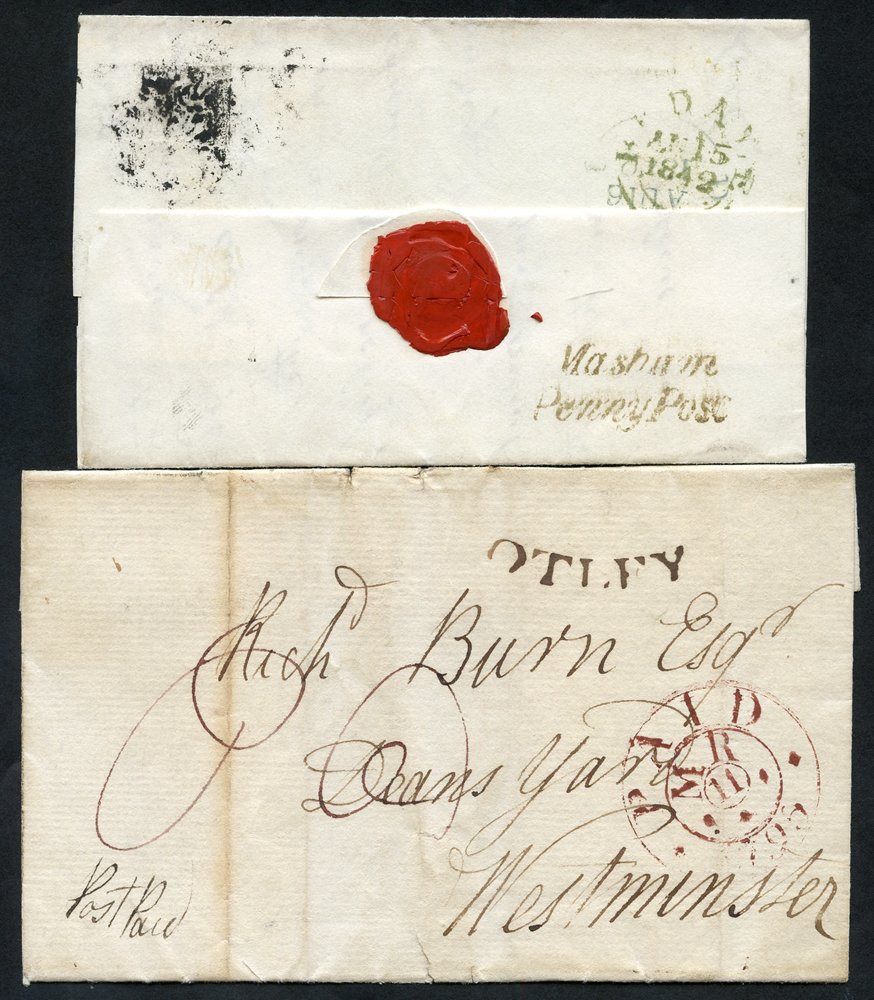 AP 15
1842
Masham
Penny Post
OTLEY
Rich^d Burn Esq^r
Deans Yard
Westminster
Post Paid
PAID
MR
11